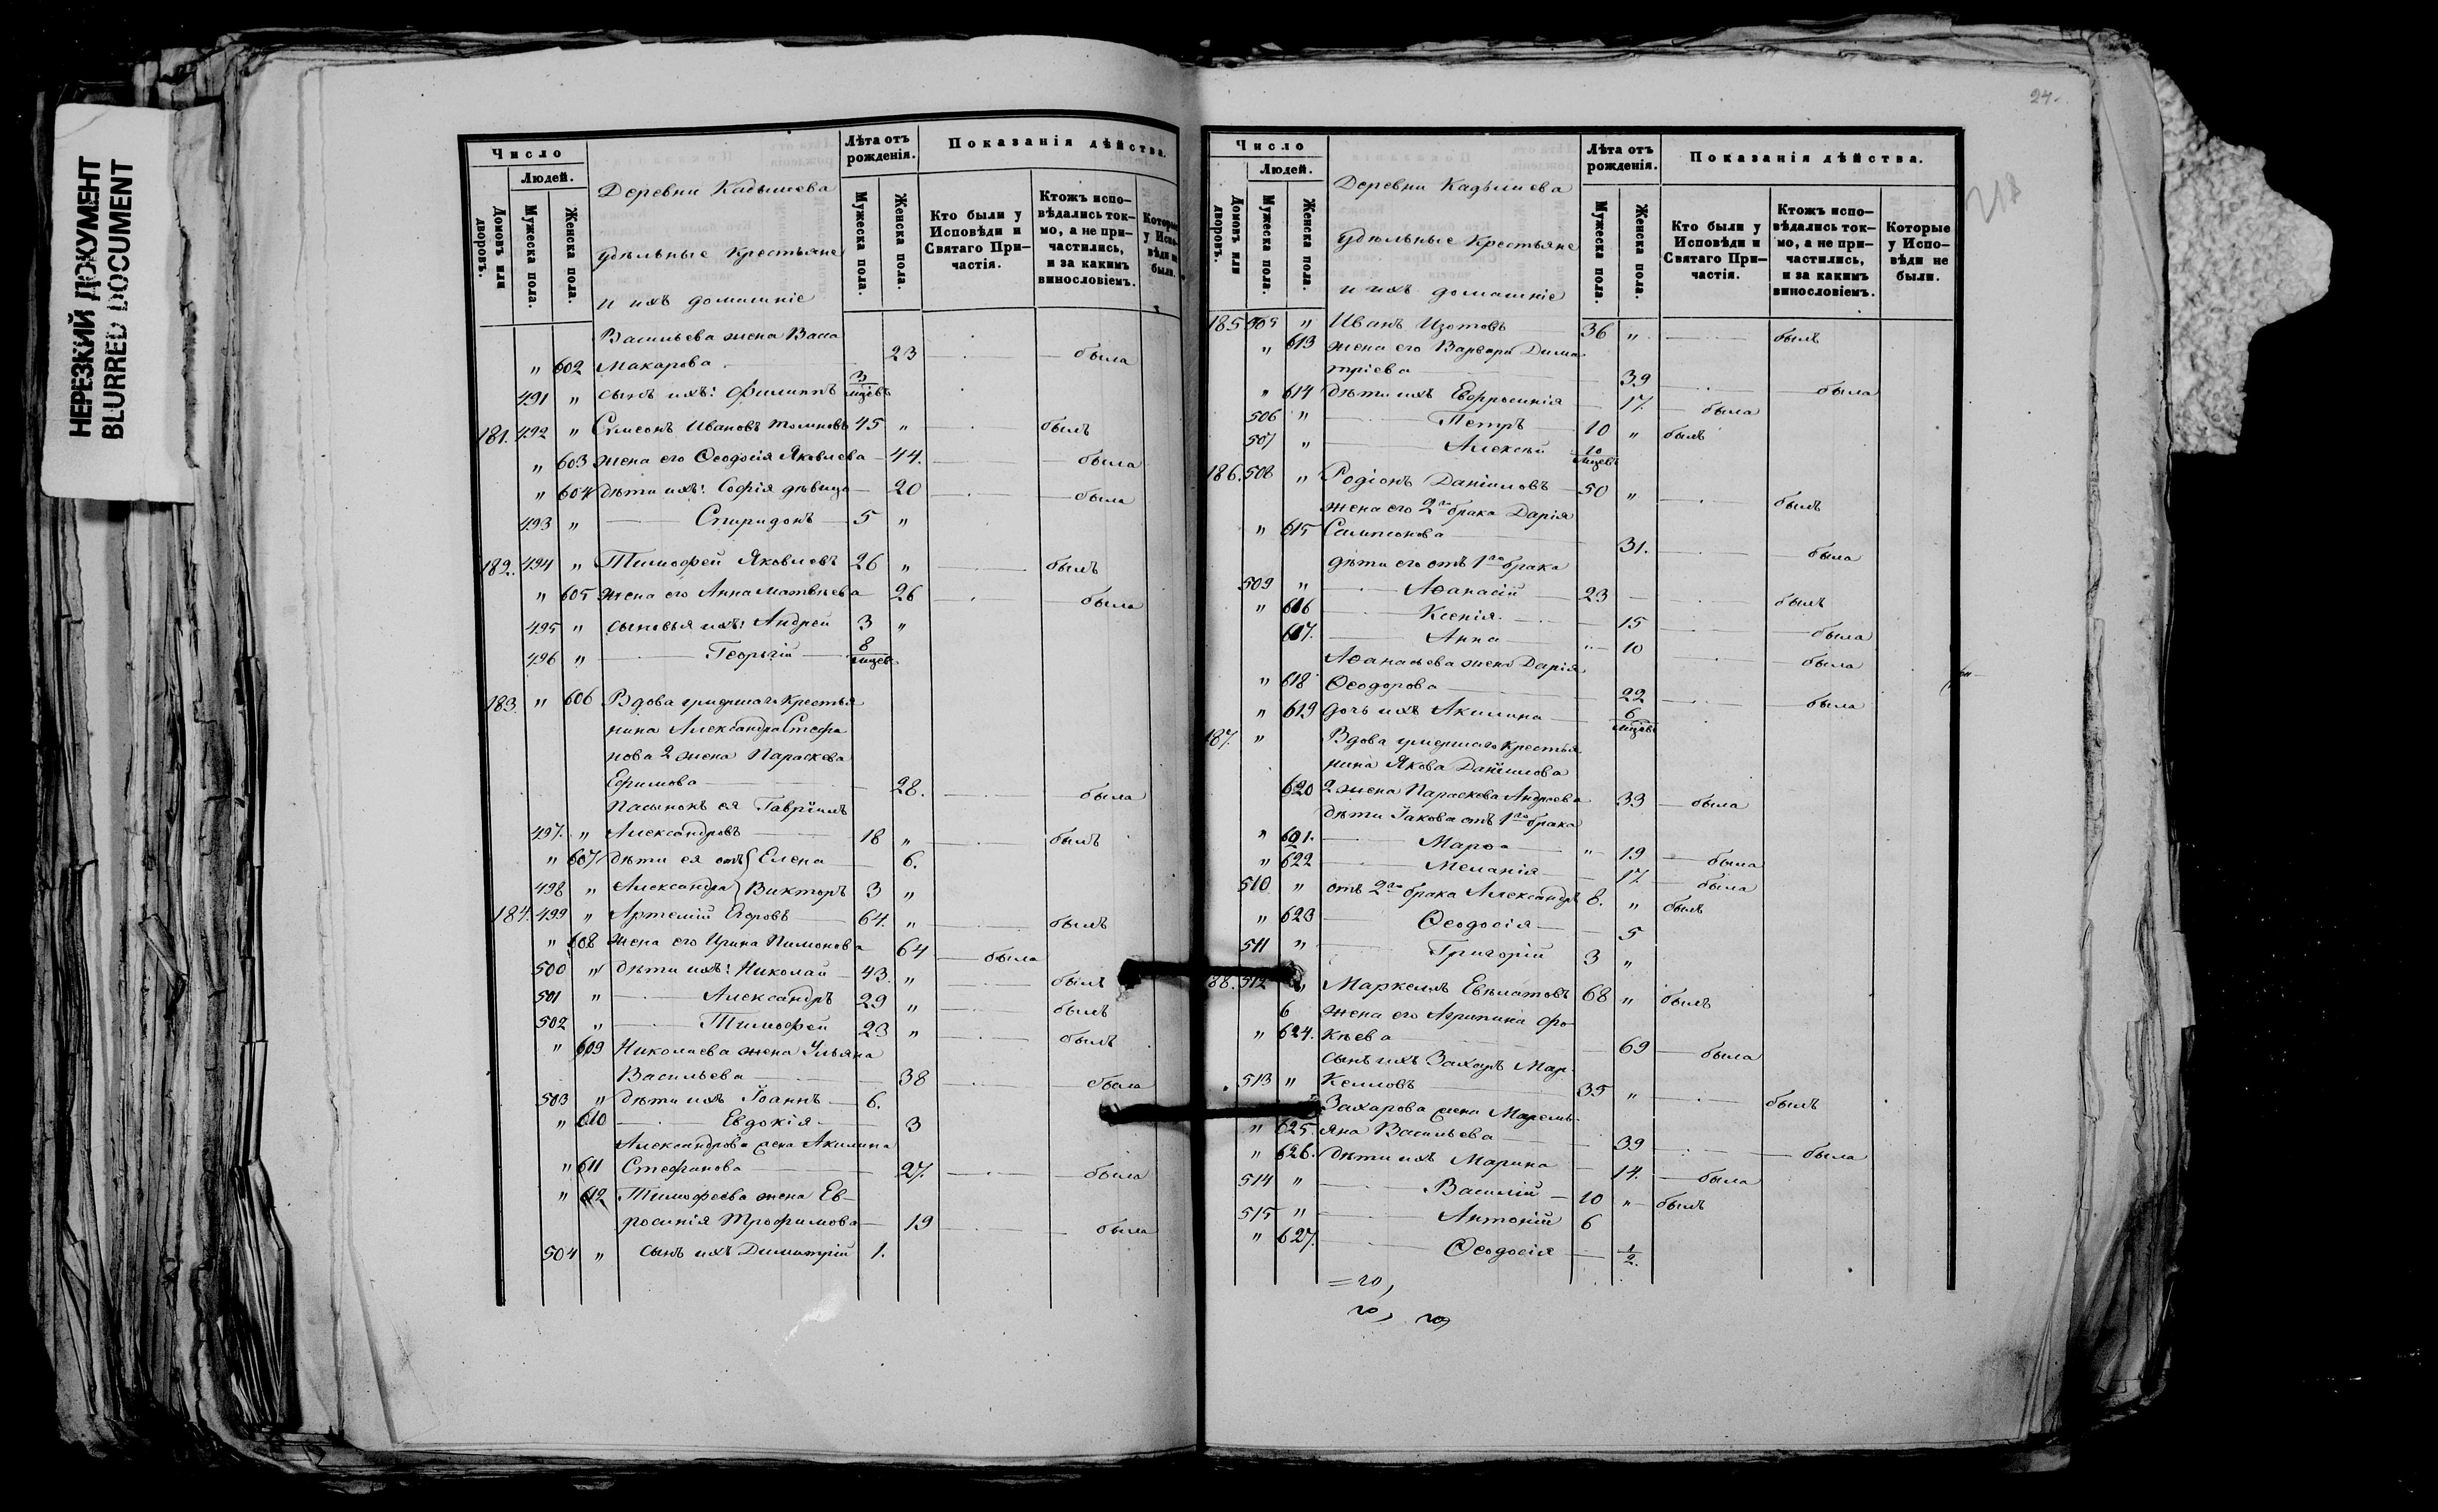 НЕРЕЗКИЙ ДОКУМЕНТ
BLURRED DOCUMENT
Число
Людей.
Домовъ или дворовъ.
Мужеска пола.
Женска пола.
Деревни Кадышева
удѣльные крестьяне
и ихъ домашніе
Лѣта отъ рожденія.
Мужеска пола.
Женска пола.
Показанія дѣйства.
Кто были у Исповѣди и Святаго Причастія.
Ктожъ исповѣдались токмо, а не причастились, и за какимъ винословіемъ.
Которые у Исповѣди не были.
Васильева жена Васса
" 602 Макарова 23 была
491 " сынъ ихъ: Филиппъ 3 мцевъ
181. 492 " Симеонъ Ивановъ 45 " былъ
" 603 жена его Ѳеодосія Яковлева 44. была
" 604 дѣти ихъ: Софія дѣвица 20 была
493 " Спиридонъ 5 "
182. 494 " Тимофей Яковлевъ 26 " былъ
" 605 жена его Анна Матвѣева 26 была
495 " сыновья ихъ: Андрей 3 "
496 " Георгій 8 мцев
183. " 606 Вдова умершаго крестья
нина Александра Стефа
нова 2 жена Параскева
Ефимова 28. была
Пасынокъ ея Гавріилъ
497. " Александровъ 18 " былъ
" 607 дѣти ея отъ Елена 6.
498 " Александра Викторъ 3 "
184. 499 " Артемій 64. " былъ
" 608 жена его Ирина Пимонова 64 была
500 " дѣти ихъ: Николай 43. " былъ
501 " Александръ 29 " былъ
502 " Тимофей 23 " былъ
" 609 Николаева жена Ульяна
Васильева 38 была
503 " дѣти ихъ Іоаннъ 6.
" 610 Евдокія 3
Александрова жена Акилина
" 611 Стефанова 27. была
" 612 Тимофеева жена Ев-
росинія Трофимова 19 была
504 " сынъ ихъ Димитрій 1.
24.
218
Число
Людей.
Домовъ или дворовъ.
Мужеска пола.
Женска пола.
Деревни Кадышева
удѣльные крестьяне
и ихъ домашніе
Лѣта отъ рожденія.
Мужеска пола.
Женска пола.
Показанія дѣйства.
Кто были у Исповѣди и Святаго Причастія.
Ктожъ исповѣдались токмо, а не причастились, и за какимъ винословіемъ.
Которые у Исповѣди не были.
185 505 " Иванъ Изотовъ 36 " былъ
" 613 жена его Варвара Дими
тріева 39 была
" 614 дѣти ихъ Евфросинія 17. была
506 " Петръ 10 " былъ
507 " Алексѣй 10 мцевъ
186. 508 " Родіонъ Даніиловъ 50 " былъ
жена его 2го брака Дарія
" 615 Сампсонова 31. была
дѣти его отъ 1го брака
509 " Аѳанасій 23 былъ
" 616 Ксенія 15 была
617. Анна " 10 была
Аѳанасьева жена Дарія
" 618 Ѳеодорова 22 была
" 619 дочь ихъ Акилина 6 мцевъ
187. " Вдова умершаго крестья
нина Якова Даніилова
620 2 жена Параскева Андреева 33 была
дѣти Іакова отъ 1го брака
" 621. Марѳа " 19 была
" 622 Меланія 17 была
510 " отъ 2го брака Александръ 8. " былъ
" 623 Ѳеодосія 5
511 " Григорій 3 "
188. 512 " Маркеллъ 68 " былъ
жена его Агрипина Фо-
" 624. кѣева 69 была
сынъ ихъ Захаръ Мар-
513 " келловъ 35 " былъ
Захарова жена Маремь-
" 625. яна Васильева 39 была
" 626. дѣти ихъ Марина 14. была
514 " Василій 10 " былъ
515 " Антоній 6
" 627. Ѳеодосія 1/2.